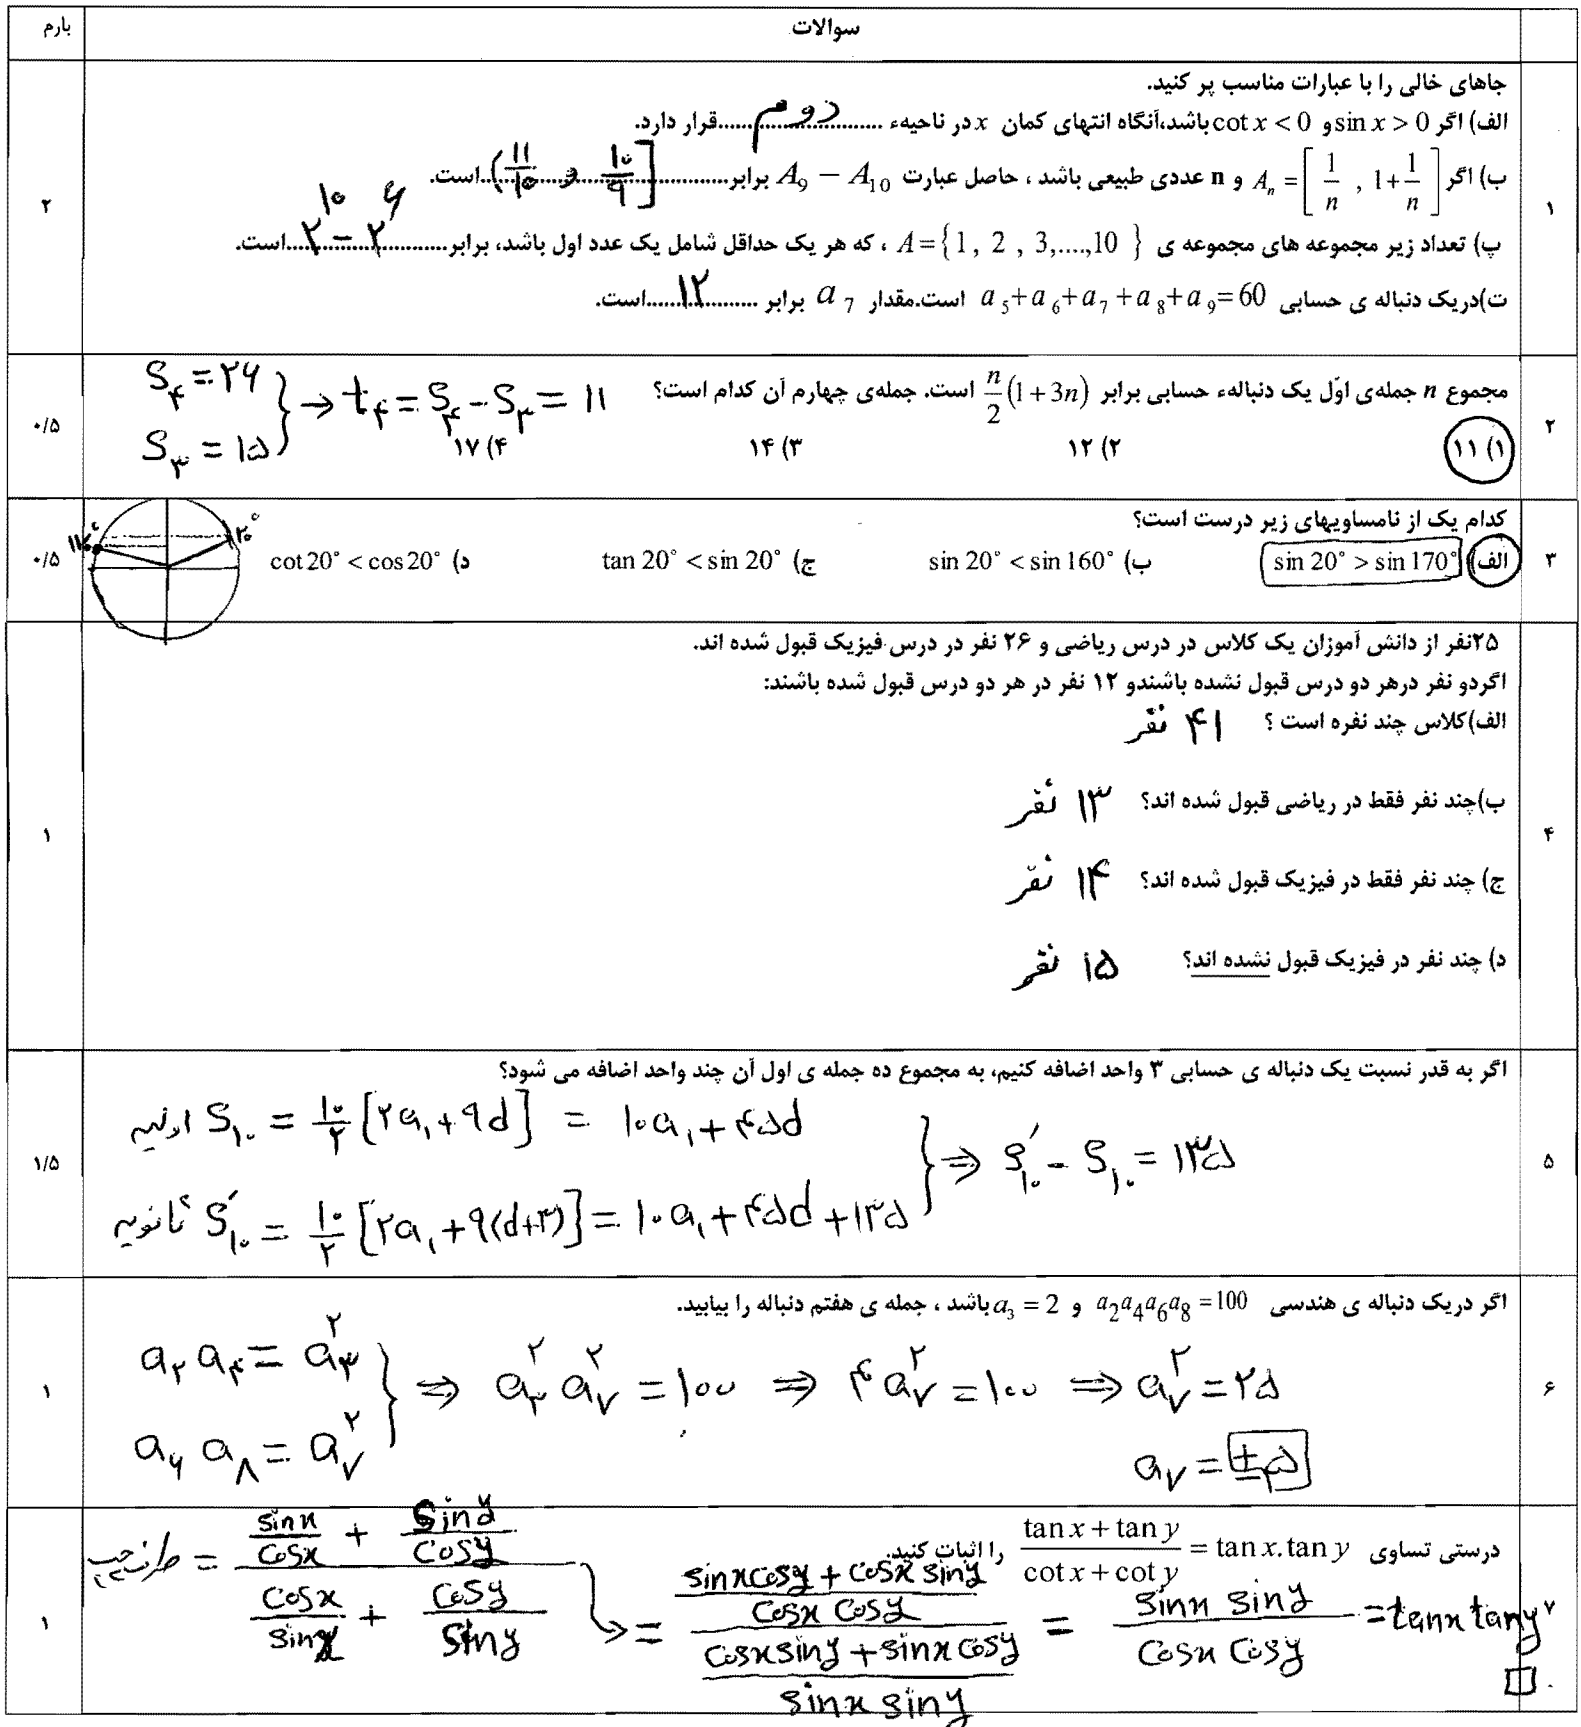 سوالات
بارم
۱
جاهای خالی را با عبارات مناسب پر کنید.
الف) اگر sin x > 0 و cot x < 0 باشد،آنگاه انتهای کمان x در ناحیهء ........دوم........ قرار دارد.
ب) اگر A_n = [ 1/n , 1+1/n ] و n عددی طبیعی باشد ، حاصل عبارت A_9 − A_10 برابر........(۱۱/۱۰ , ۱۰/۹]........است.
پ) تعداد زیر مجموعه های مجموعه ی A={1, 2 , 3,....,10 } ، که هر یک حداقل شامل یک عدد اول باشد، برابر........۲^۱۰ − ۲^۶........است.
ت)دریک دنباله ی حسابی a_5+a_6+a_7+a_8+a_9=60 است.مقدار a_7 برابر ........۱۲........است.
۲
۲
مجموع n جمله‌ی اوّل یک دنبالهء حسابی برابر n/2(1+3n) است. جمله‌ی چهارم آن کدام است؟
۱) ۱۱
۲) ۱۲
۳) ۱۴
۴) ۱۷
S_۴ = ۲۶
S_۳ = ۱۵
→ t_۴ = S_۴ − S_۳ = ۱۱
۰/۵
۳
کدام یک از نامساویهای زیر درست است؟
الف) sin 20° > sin 170°
ب) sin 20° < sin 160°
ج) tan 20° < sin 20°
د) cot 20° < cos 20°
۱۷۰°
۲۰°
۰/۵
۴
۲۵نفر از دانش آموزان یک کلاس در درس ریاضی و ۲۶ نفر در درس فیزیک قبول شده اند.
اگردو نفر درهر دو درس قبول نشده باشندو ۱۲ نفر در هر دو درس قبول شده باشند:
الف)کلاس چند نفره است ؟ ۴۱ نفر
ب)چند نفر فقط در ریاضی قبول شده اند؟ ۱۳ نفر
ج) چند نفر فقط در فیزیک قبول شده اند؟ ۱۴ نفر
د) چند نفر در فیزیک قبول نشده اند؟ ۱۵ نفر
۱
۵
اگر به قدر نسبت یک دنباله ی حسابی ۳ واحد اضافه کنیم، به مجموع ده جمله ی اول آن چند واحد اضافه می شود؟
اولیه S_۱۰ = ۱۰/۲ [۲a_۱ + ۹d] = ۱۰a_۱ + ۴۵d
ثانویه S′_۱۰ = ۱۰/۲ [۲a_۱ + ۹(d+۳)] = ۱۰a_۱ + ۴۵d + ۱۳۵
⇒ S′_۱۰ − S_۱۰ = ۱۳۵
۱/۵
۶
اگر دریک دنباله ی هندسی a_2a_4a_6a_8 =100 و a_3 = 2 باشد ، جمله ی هفتم دنباله را بیابید.
a_۲ a_۴ = a_۳^۲
a_۶ a_۸ = a_۷^۲
⇒ a_۳^۲ a_۷^۲ = ۱۰۰ ⇒ ۴ a_۷^۲ = ۱۰۰ ⇒ a_۷^۲ = ۲۵
a_۷ = ±۵
۱
۷
درستی تساوی (tan x + tan y)/(cot x + cot y) = tan x.tan y را اثبات کنید.
طرف چپ = (sinx/cosx + siny/cosy)/(cosx/sinx + cosy/siny)
= ((sinx cosy + cosx siny)/(cosx cosy))/((cosx siny + sinx cosy)/(sinx siny)) = (sinx siny)/(cosx cosy) = tanx tany
۱